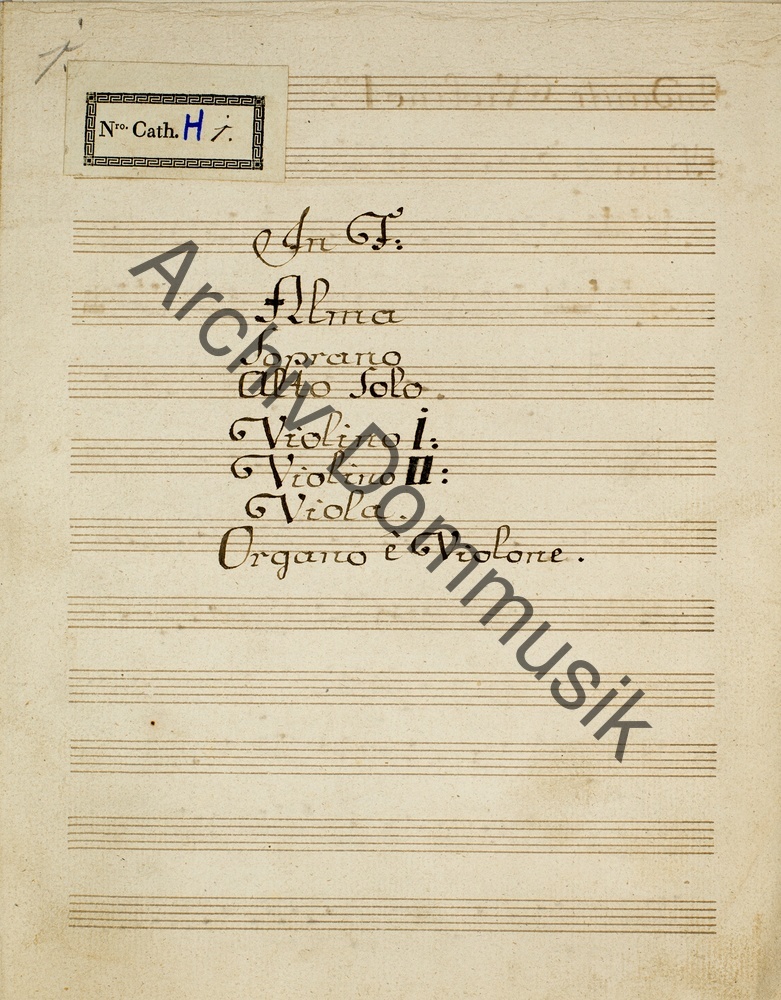 j.
Nro. Cath. H j.
In F:
Alma
Soprano
Alto Solo.
Violino I:
Violino II:
Viola.
Organo è Violone.
Archiv Dommusik